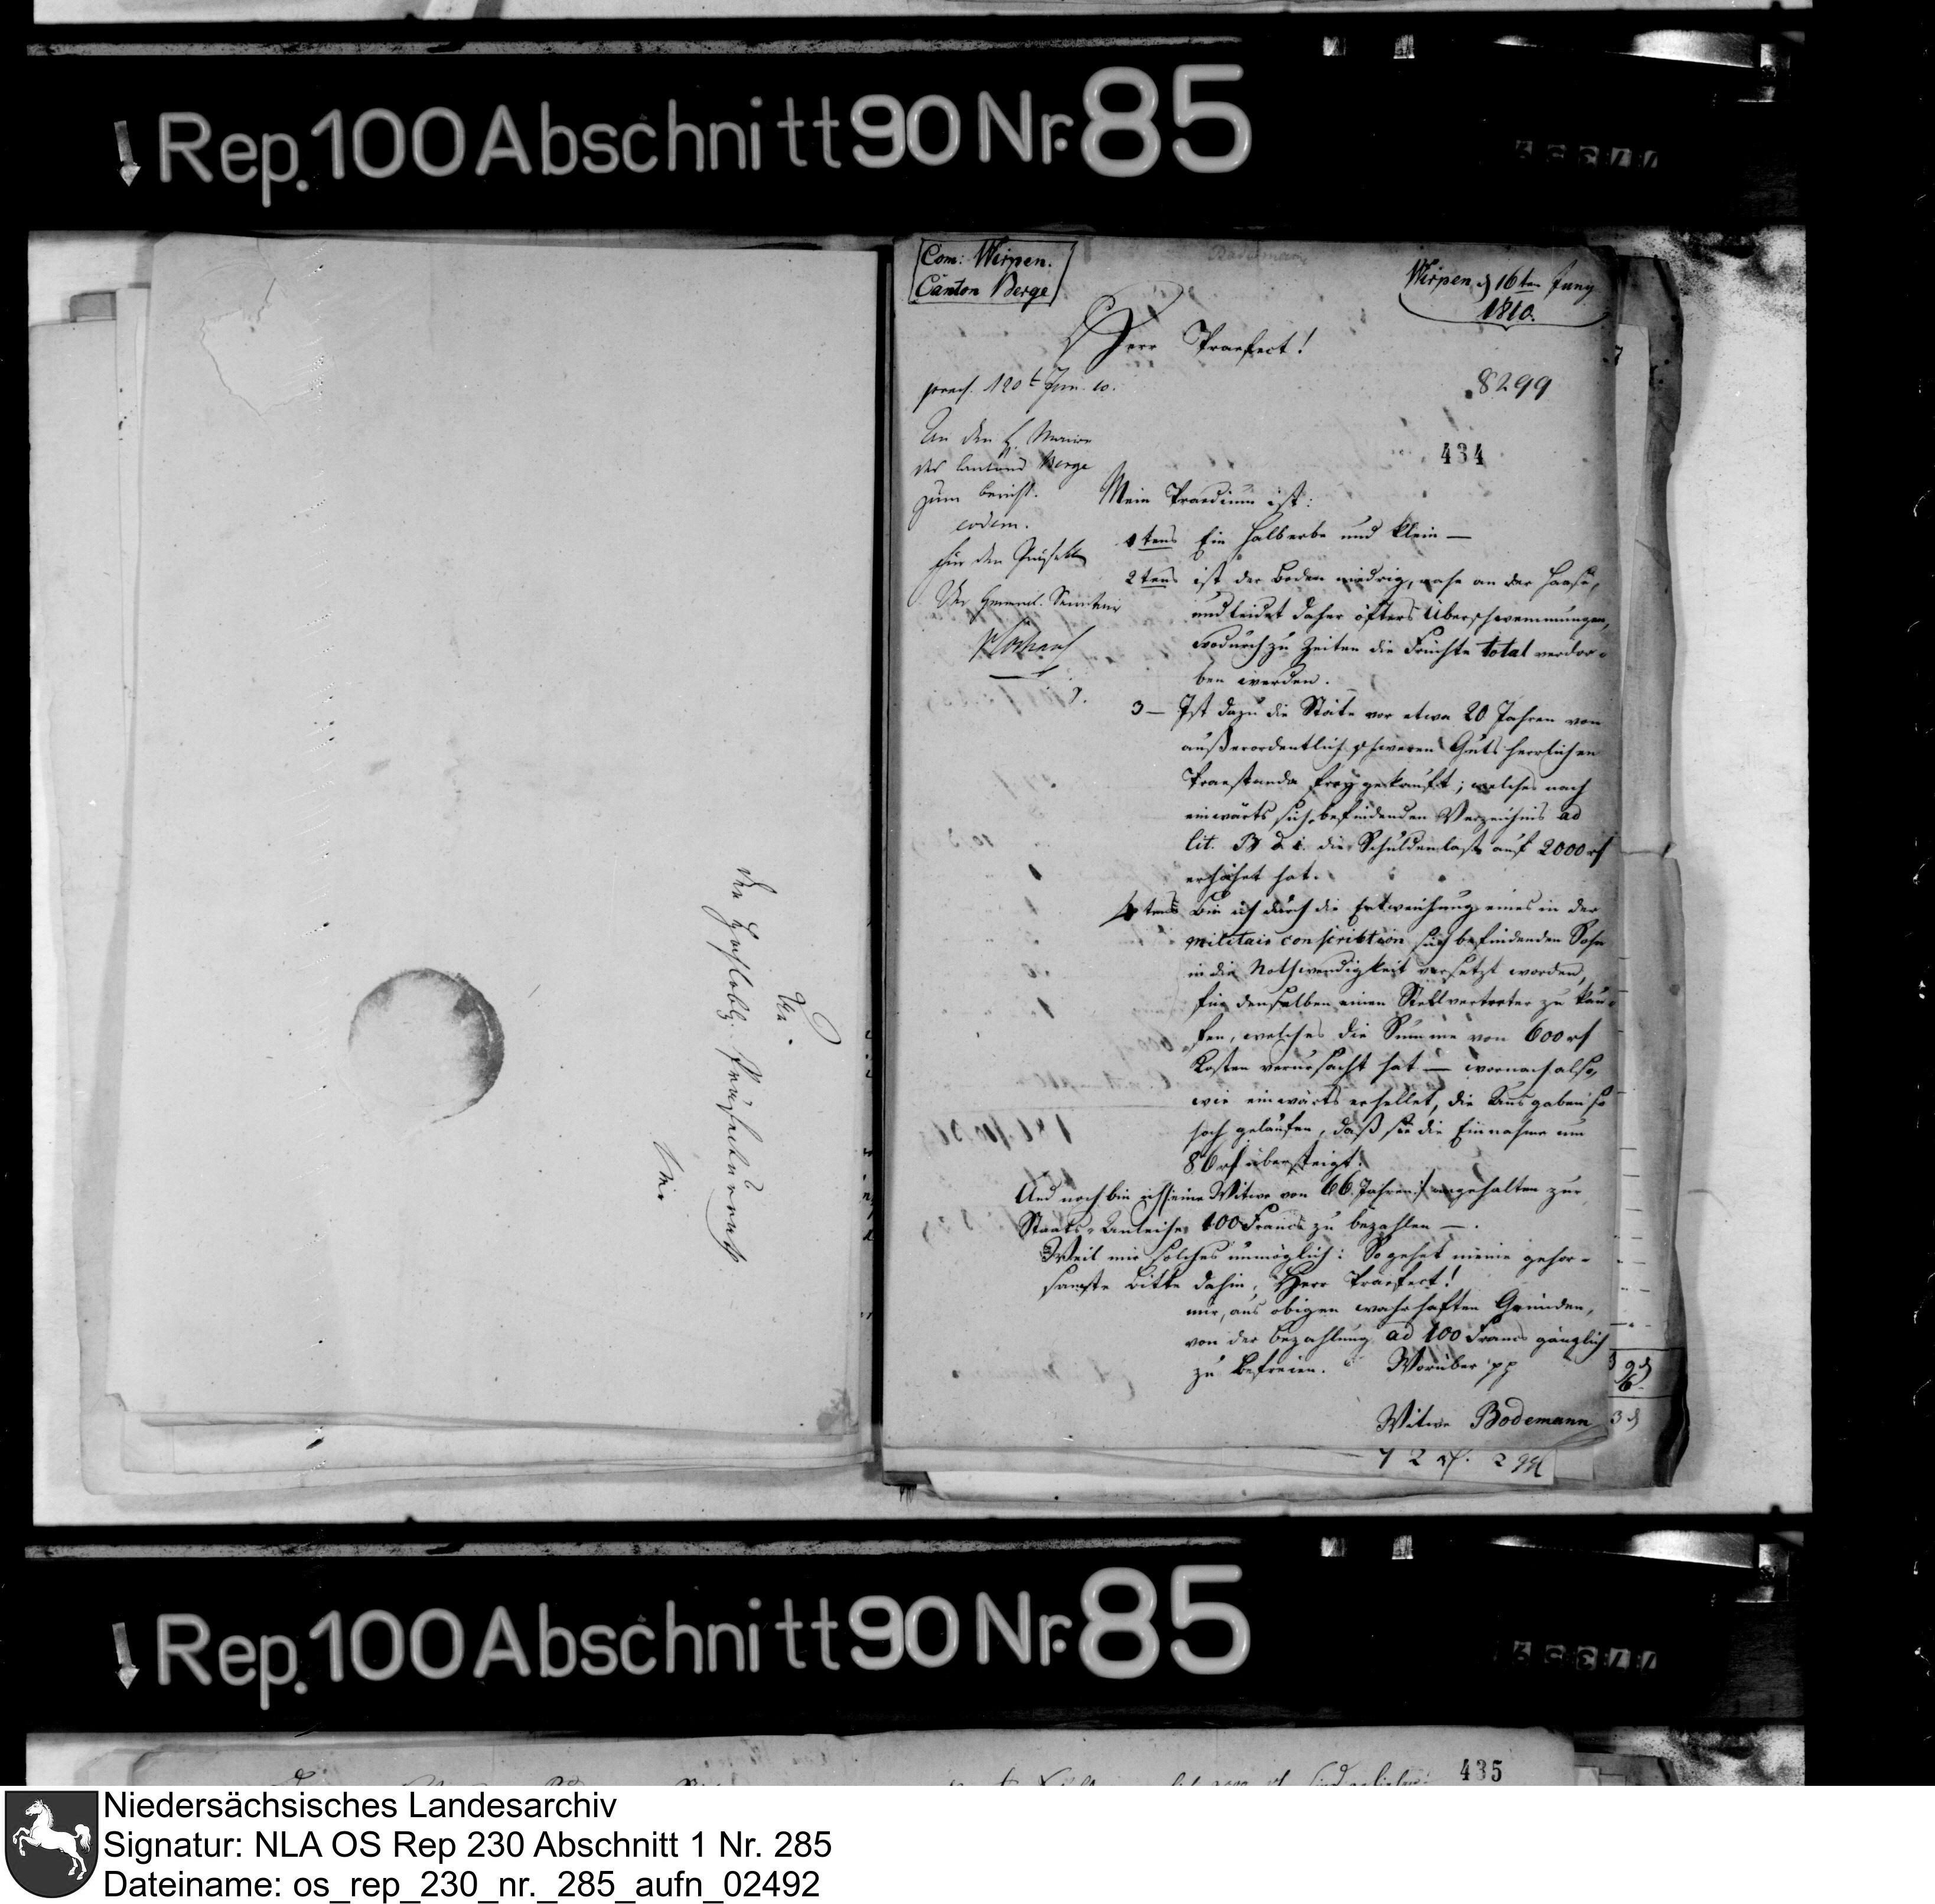 Rep. 100 Abschnitt 90 Nr. 85
Com: Wirpen.
Canton Berge
Wirpen d 16ten Juny
1810.
Herr Praefect!
praes. Jun. 10.
8299
An den H. Maire
des Cantons Berge
zum Bericht.
eodem.
Für den Präfekt
Der General-Secretair
434
Mein Praedium ist:
1tens Ein Halberbe und klein —
2tens ist der Boden niedrig, nahe an der Haase,
und leidet daher öfters Überschwemmungen,
wodurch zu Zeiten die Früchte total verdor-
ben werden.
3 — Ist dazu die Stäte vor etwa 20 Jahren von
außerordentlich schweren Gutsherrlichen
Praestanda freygekauft; welches nach
einwärts sich befindenden Verzeichnis ad
lit. B d. i. die Schuldenlast auf 2000 rt
erhöhet hat.
4tens Bin ich durch die Entweichung eines in der
militair conscribtion sich befindenden Sohn
in die Nothwendigkeit versetzt worden,
für denselben einen Stellvertreter zu kau-
fen, welches die Summe von 600 rt
Kosten verursacht hat — wornach also,
wie einwärts erhellet, die Ausgaben so
hoch gelaufen, daß sie die Einnahme um
86 rt übersteigt.
Und noch bin ich /:eine Witwe von 66 Jahren:/ angehalten zur
Staats-Anleihe 100 Francs zu bezahlen —.
Weil mir solches unmöglich: So gehet meine gehor-
samste Bitte dahin, Herr Praefect!
mir, aus obigen wahrhaften Gründen,
von der Bezahlung ad 100 Francs gänzlich
zu befreien. Worüber pp
Witwe Bodemann
An
die Hochlöbl. Präfectur
hier
Rep. 100 Abschnitt 90 Nr. 85
435
Niedersächsisches Landesarchiv
Signatur: NLA OS Rep 230 Abschnitt 1 Nr. 285
Dateiname: os_rep_230_nr._285_aufn_02492